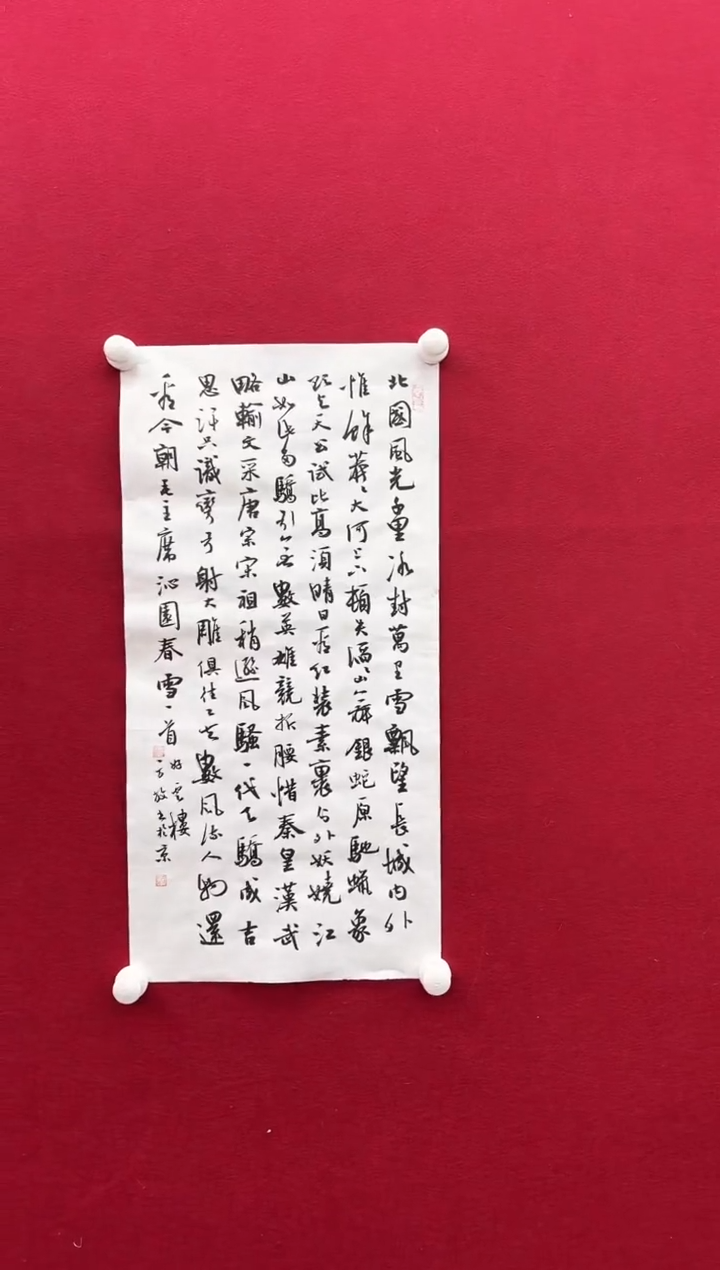 北國風光千里冰封萬里雪飄望長城内外
惟餘莽〻大河上下頓失滔〻山舞銀蛇原馳蠟象
欲与天公試比高須晴日看红裝素裹分外妖嬈江
山如此多驕引無數英雄競折腰惜秦皇漢武
略輸文采唐宗宋祖稍遜風騷一代天驕成吉
思汗只識彎弓射大雕俱往矣數風流人物還
看今朝毛主席沁園春雪一首
好雲樓
书於京